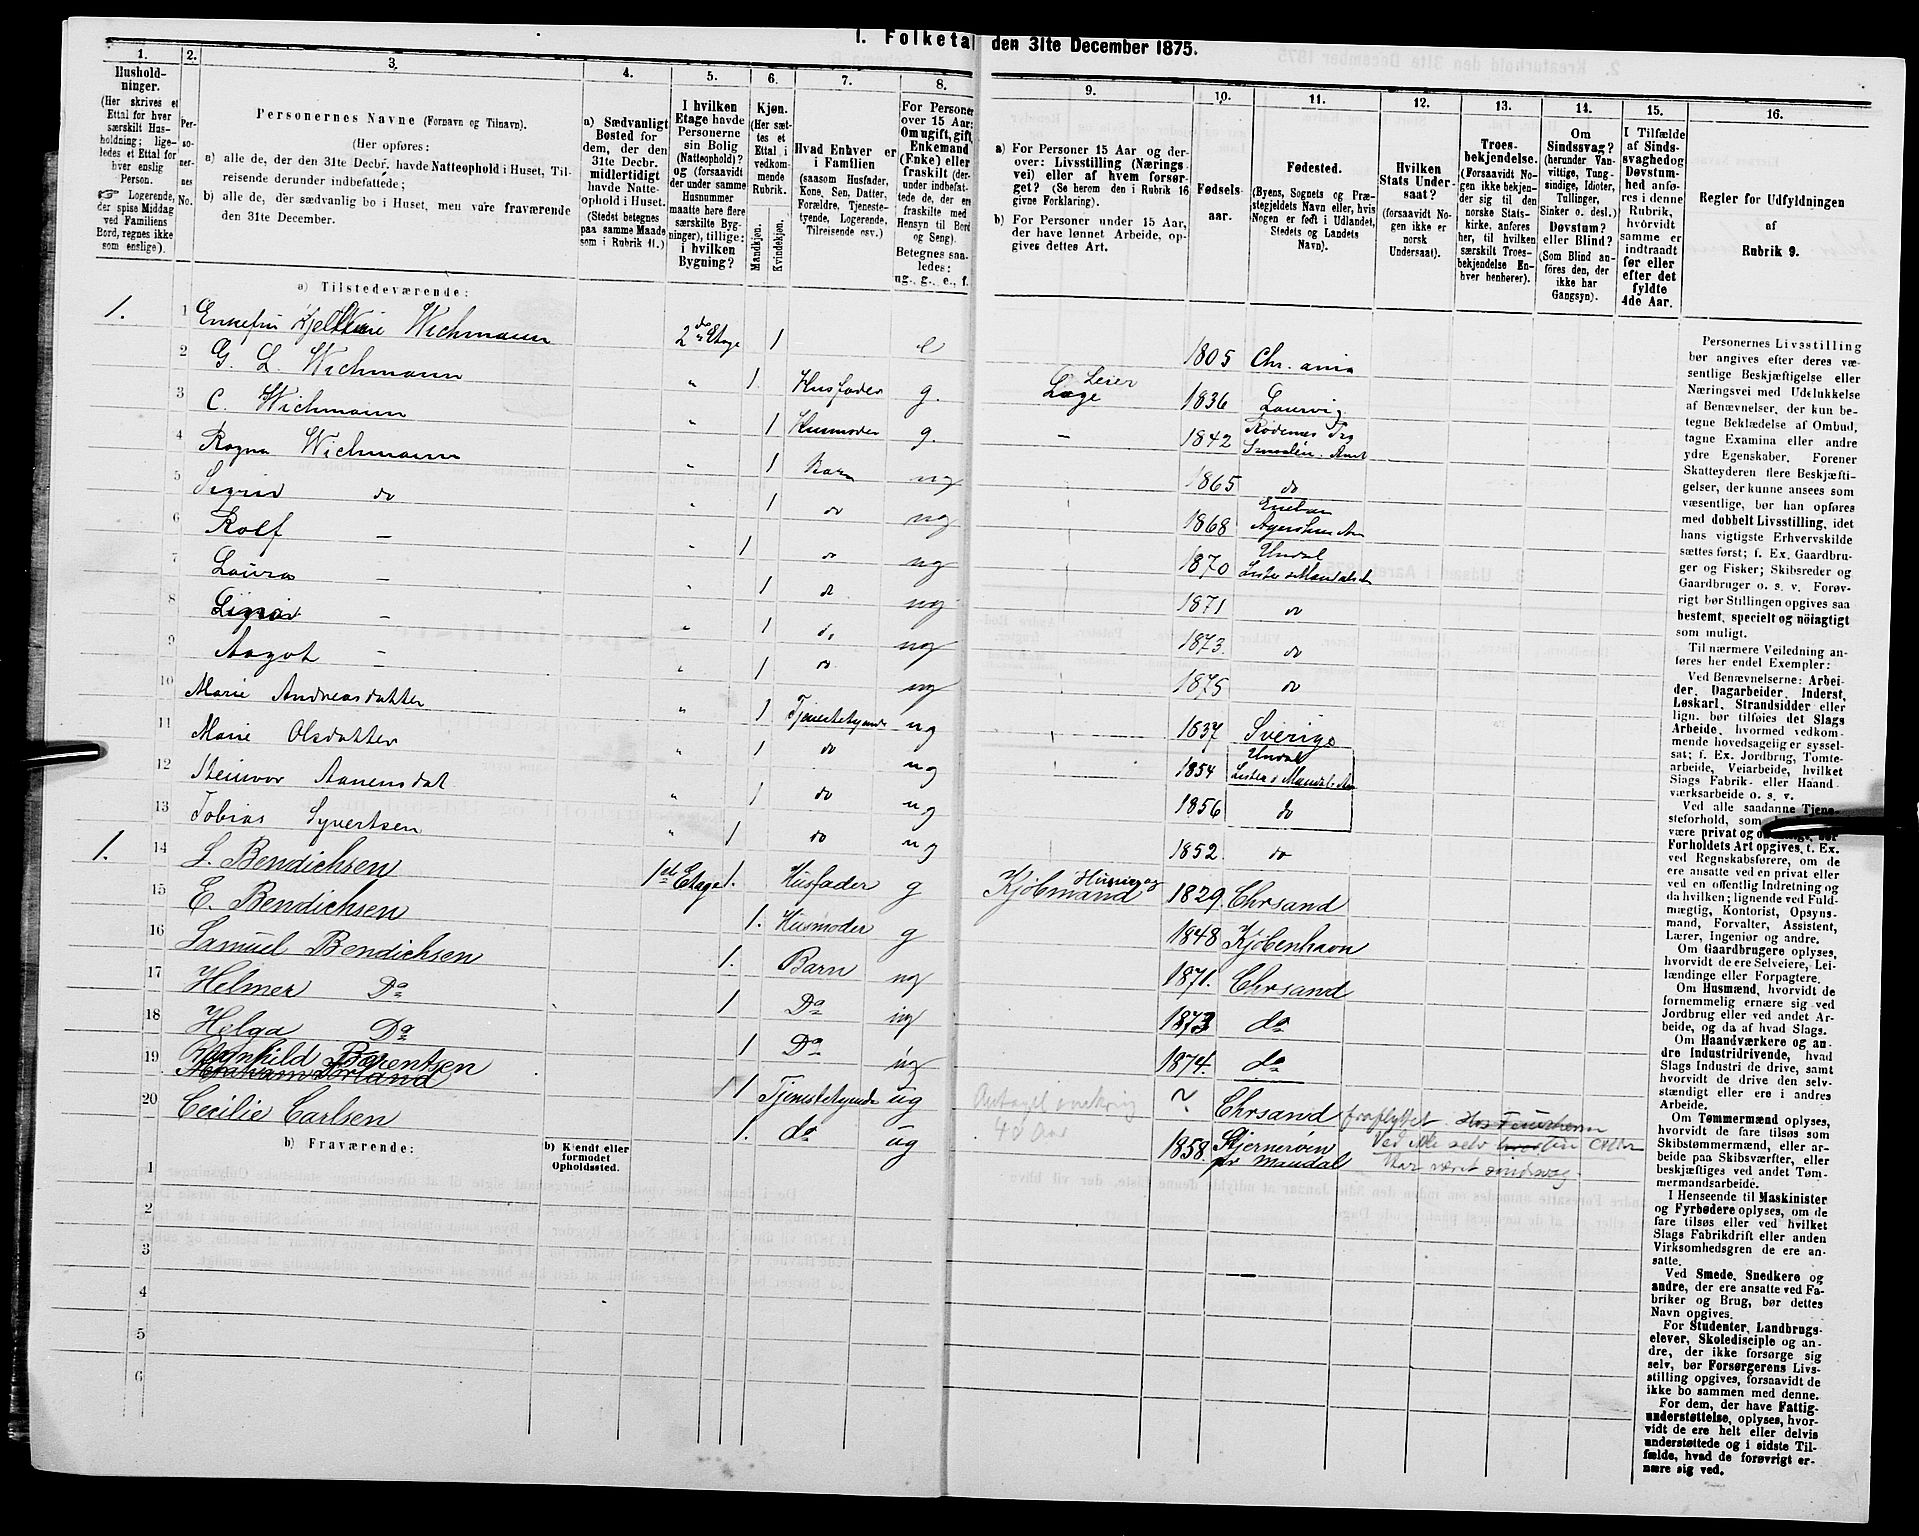 1. Folketal den 31te December 1875.
1.
Hushold-
ninger.
(Her skrives et
Ettal for hver
særskilt Hus-
holdning; lige-
ledes et Ettal for
hver enslig
Person.
☞ Logerende,
der spise Middag
ved Familiens
Bord, regnes ikke
som enslige).
2.
Per-
so-
ner-
nes
No.
3.
Personernes Navne (Fornavn og Tilnavn).
(Her opføres:
a) alle de, der den 31te Decbr. havde Natteophold i Huset, Til-
reisende derunder indbefattede;
b) alle de, der sædvanlig bo i Huset, men vare fraværende
den 31te December.
4.
a) Sædvanligt
Bosted for
dem, der den
31te Decbr.
midlertidigt
havde Natte-
ophold i Huset.
(Stedet betegnes
paa samme Maade
som i Rubrik 11.)
5.
I hvilken
Etage havde
Personerne
sin Bolig
(Natteophold)?
og (forsaavidt
der under samme
Husnummer
maatte høre flere
særskilte Byg-
ninger), tillige:
i hvilken
Bygning?
6.
Kjøn.
(Her sæt-
tes et
Ettal i
vedkom-
mende
Rubrik.
Mandkjøn.
Kvindekjøn.
7.
Hvad Enhver er
i Familien
(saasom Husfader,
Kone, Søn, Datter,
Forældre, Tjeneste-
tyende, Logerende,
Tilreisende osv.)
8.
For Personer
over 15 Aar:
Om ugift, gift,
Enkemand
(Enke) eller
fraskilt (der-
under indbefat-
tede de, der ere
fraskilte med
Hensyn til Bord
og Seng).
Betegnes saa-
ledes:
ug., g., e., f.
9.
a) For Personer 15 Aar og der-
over: Livsstilling (Nærings-
vei) eller af hvem forsør-
get? (Se herom den i Rubrik 16
givne Forklaring).
b) For Personer under 15 Aar,
der have lønnet Arbeide, op-
gives dettes Art.
10.
Fødsels-
aar.
11.
Fødested.
(Byens, Sognets og Præ-
stegjeldets Navn eller, hvis
Nogen er født i Udlandet,
Stedets og Landets
Navn).
12.
Hvilken
Stats Under-
saat?
(forsaavidt No-
gen ikke er
norsk
Undersaat).
13.
Troes-
bekjendelse.
(Forsaavidt No-
gen ikke bekjen-
der sig til den
norske Stats-
kirke, anføres
her, til hvilken
særskilt Troes-
bekjendelse En-
hver henhører).
14.
Om
Sindssvag?
(herunder Van-
vittige, Tung-
sindige, Idioter,
Tullinger,
Sinker o. desl.)
Døvstum?
eller Blind?
(Som Blind an-
føres den, der
ikke har
Gangsyn).
15.
I Tilfælde
af Sinds-
svaghed og
Døvstum-
hed anfø-
res i denne
Rubrik,
hvorvidt
samme er
indtraadt
før eller
efter det
fyldte
4de Aar.
16.
Regler for Udfyldningen
af
Rubrik 9.
a) Tilstedeværende:
1. 1 Enkefru Wichmann 2den Etage 1 e 1805 Chr.ania
2 G. L. Wichmann " 1. Husfader g. Leier Læge 1836 Laurvig
3 C. Wichmann " 1 Husmoder g. – 1842 Rødenes Prg Smaalen. Amt
4 Ragna Wichmann " 1 Barn ug 1865 do
5 Sigrid do " 1 do ug 1868 Enebak Agershus Am
6 Rolf – " 1 do ug 1870 Undal Lister & Mandals
7 Laura – " 1 do ug 1871 do
8 – " 1 do ug 1873. do
9 Aagot – " 1 do ug 1875 do
10 Marie Andreasdatter " 1 Tjenestetyende ug 1837 Sverige
11 Marie Olsdatter " 1 do ug 1854 Undal Lister & Mandals Am
12 Steinvor Aanensdat " 1 do ug 1856 do
13 Tobias Syvertsen " 1 do ug 1852. do
1. 14 S. Bendichsen 1ste Etage 1. Husfader g Kjøbmand 1829. Chrsand
15 E. Bendichsen 1. Husmoder g 1848 Kjøbenhavn
16 Samuel Bendichsen 1. Barn ug 1871. Chrsand
17 Helmer Do 1 Do ug 1873 do
18 Helga Do 1 Do ug 1874. do
19 Ragnhild Berentsen 1 1 Tjenestetyende ug Antagel. omkring 40 Aar ? Chrsand fraflyttet
20 Cecilie Carlsen 1. do ug 1858. Skjernøen pr Mandal
b) Fraværende:
b) Kjendt eller
formodet
Opholdssted.
1
2
3
4
5
6
Personernes Livsstilling
bør angives efter deres væ-
sentlige Beskjæftigelse eller
Næringsvei med Udelukkelse
af Benævnelser, der kun be-
tegne Beklædelse af Ombud,
tagne Examina eller andre
ydre Egenskaber. Forener
Skatteyderen flere Beskjæfti-
gelser, der kunne ansees som
væsentlige, bør han opføres
med dobbelt Livsstilling, idet
hans vigtigste Erhvervskilde
sættes først; f. Ex. Gaardbru-
ger og Fisker; Skibsreder og
Gaardbruger o. s. v. Forøv-
rigt bør Stillingen opgives saa
bestemt, specielt og nöiagtigt
som muligt.
Til nærmere Veiledning an-
føres her endel Exempler:
Ved Benævnelserne: Arbei-
der, Dagarbeider, Inderst,
Løskarl, Strandsidder eller
lign. bør tilføies det Slags
Arbeide, hvormed vedkom-
mende hovedsagelig er syssel-
sat; f. Ex. Jordbrug, Tomte-
arbeide, Veiarbeide, hvilket
Slags Fabrik- eller Haand-
værksarbeide o. s. v.
Ved alle saadanne Tjene-
steforhold, som
være privat og
Forholdets Art opgives, t. Ex.
ved Regnskabsførere, om de
ere ansatte ved en privat eller
ved en offentlig Indretning og
da hvilken; lignende ved Fuld-
mægtig, Kontorist, Opsyns-
mand, Forvalter, Assistent,
Lærer, Ingeniør og andre.
Om Gaardbrugere oplyses,
hvorvidt de ere Selveiere, Lei-
lændinge eller Forpagtere.
Om Husmænd, hvorvidt de
fornemmelig ernære sig ved
Jordbrug eller ved andet Ar-
beide, og da af hvad Slags.
Om Haandværkere og an-
dre Industridrivende, hvad
Slags Industri de drive, samt
hvorvidt de drive den selv-
stændigt eller ere i andres
Arbeide.
Om Tømmermænd oplyses,
hvorvidt de fare tilsøs som
Skibstømmermænd, eller ar-
beide paa Skibsværfter, eller
beskjæftiges ved andet Tøm-
mermandsarbeide.
I Henseende til Maskinister
og Fyrbødere oplyses, om de
fare tilsøs eller ved hvilket
Slags Fabrikdrift eller anden
Virksomhedsgren de ere an-
satte.
Ved Smede, Snedkere og
andre, der ere ansatte ved Fa-
briker og Brug, bør dettes
Navn opgives.
For Studenter, Landbrugs-
elever, Skoledisciple og an-
dre, der ikke forsørge sig
selv, bør Forsørgerens Livs-
stilling opgives, forsaavidt de
ikke bo sammen med denne.
For dem, der have Fattig-
understøttelse, oplyses, hvor-
vidt de ere helt eller delvis
understøttede og i sidste Til-
fælde, hvad de forøvrigt er-
nære sig ved.